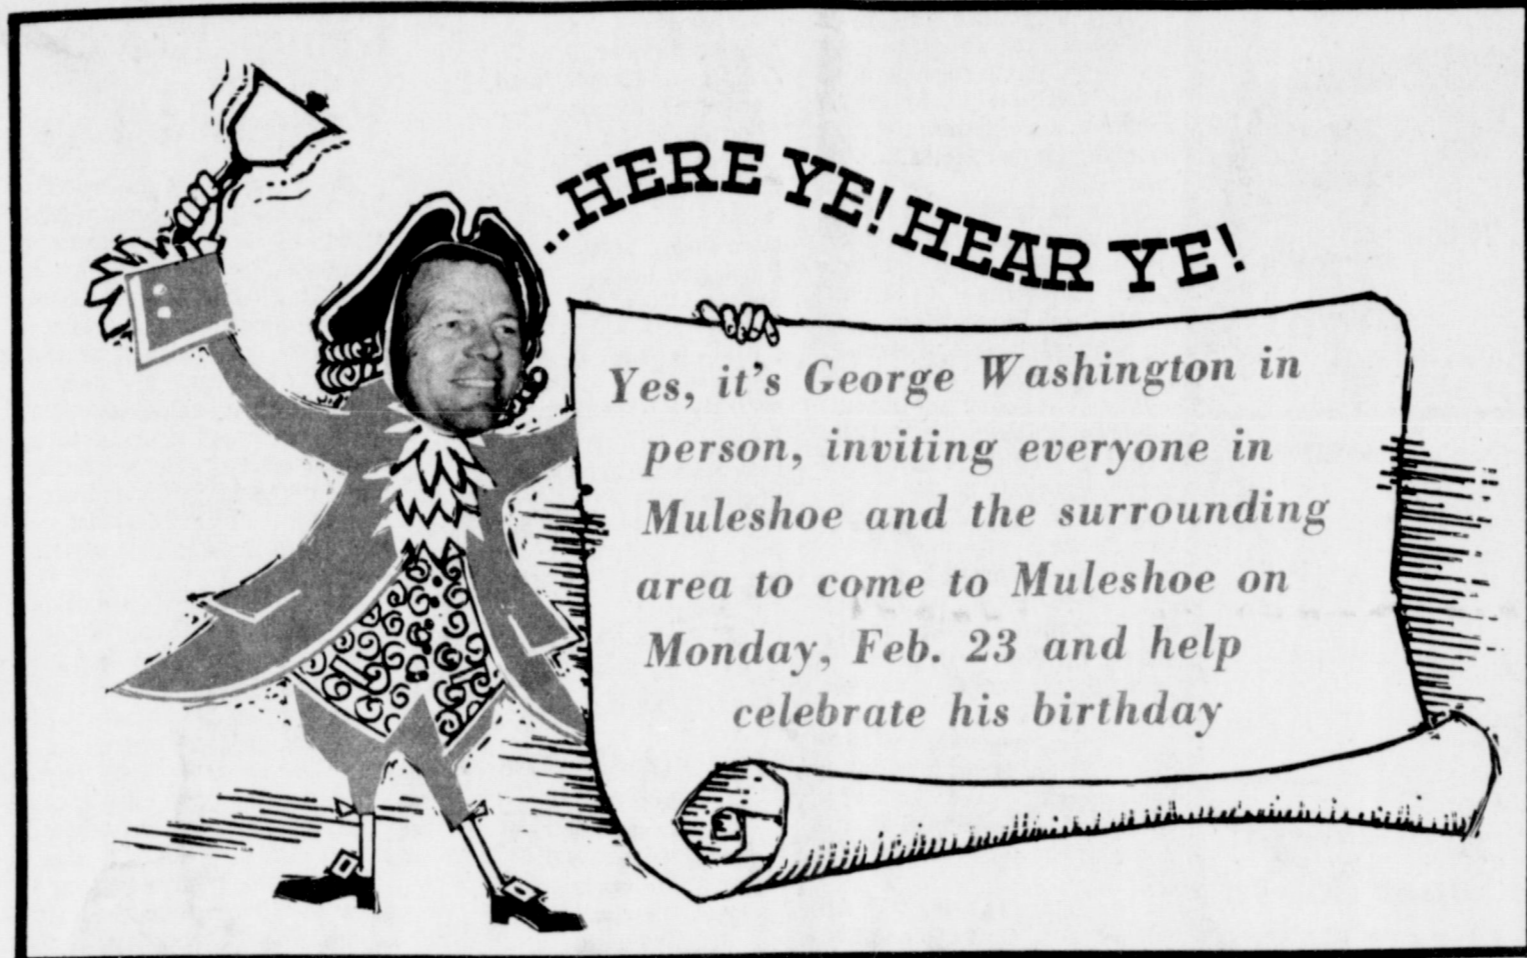 ..HERE YE! HEAR YE!
Yes, it's George Washington in
person, inviting everyone in
Muleshoe and the surrounding
area to come to Muleshoe on
Monday, Feb. 23 and help
celebrate his birthday